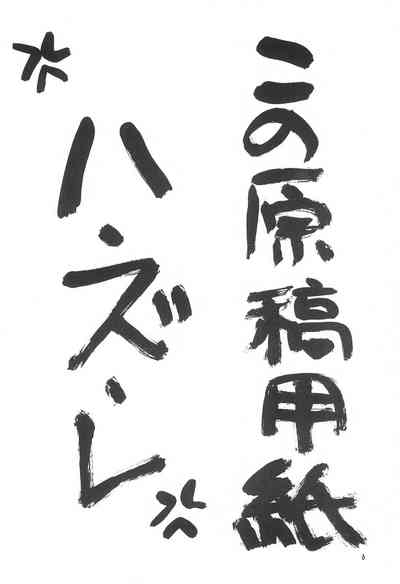 この原稿用紙
ハ・ズ・レ
6